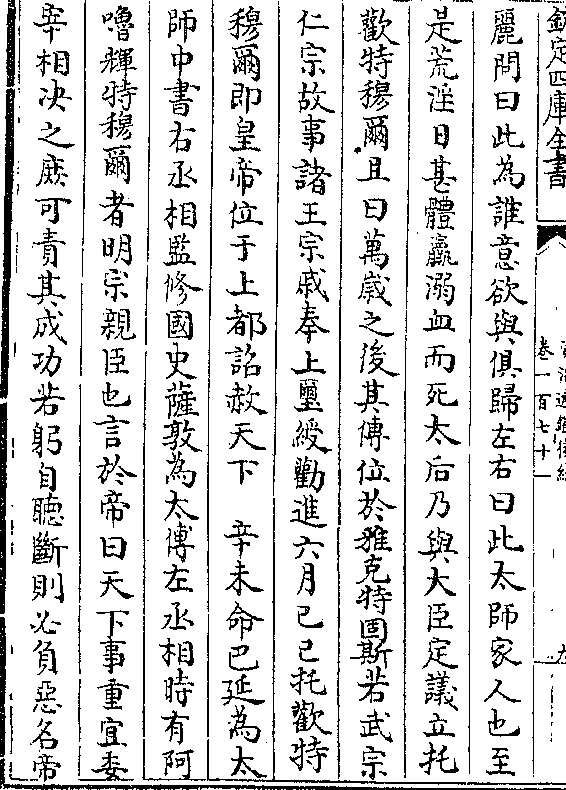 欽定四庫全書
卷一百七十一
麗問曰此為誰意欲與俱歸左右曰此太師家人也至
是荒淫日甚體羸溺血而死太后乃與大臣定議立托
歡特穆爾且曰萬歲之後其傳位於雅克特固斯若武宗
仁宗故事諸王宗戚奉上璽綬勸進六月己巳托歡特
穆爾即皇帝位于上都詔赦天下　辛未命巴延為太
師中書右丞相監修國史薩敦為太傅左丞相時有阿
嚕輝特穆爾者明宗親臣也言於帝曰天下事重宜委
宰相決之庶可責其成功若躬自聽斷則必負惡名帝